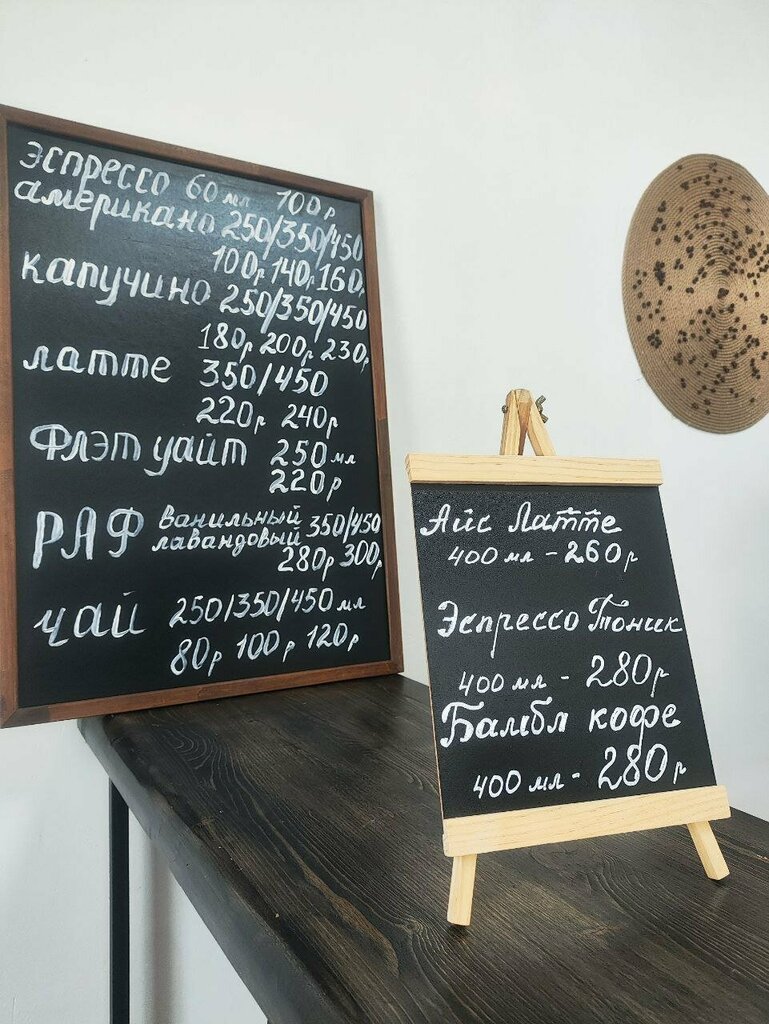 эспрессо 60 мл 100р
американо 250/350/450
100р 140р 160р
капучино 250/350/450
180р 200р 230р
латте 350/450
220р 240р
Флэт уайт 250 мл
220р
РАФ ванильный 350/450
лавандовый
280р 300р
чай 250/350/450 мл
80р 100р 120р
Айс Латте
400 мл - 260р
Эспрессо Тоник
400 мл - 280р
Бамбл кофе
400 мл - 280р